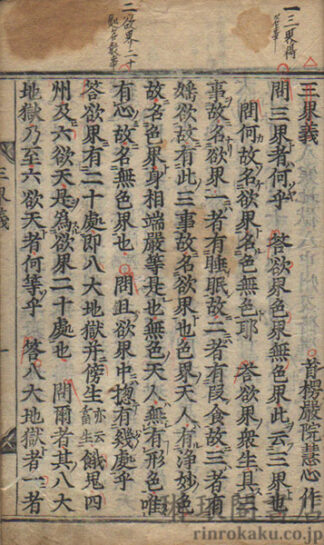 一三界得
二欲界二十
三界義 首楞嚴院慧心作
問三界者何乎 答欲界色界無色界此云三界也
問何故名欲界名色無色耶 答欲界衆生具三
事故名欲界一者有睡眠故二者有叚食故三者有
婬欲故有此三事故名欲界也色界天人有淨妙色
故名色界身相端嚴等是也無色天人無有形色唯
有心故名無色界也 問且欲界中惣有幾處乎
答欲界有二十處即八大地獄并傍生亦云畜生餓鬼四
州及六欲天是為欲界二十處也 問爾者其八大
地獄乃至六欲天者何等乎 答八大地獄者一者
三界義 一
琳琅閣書店
rinrokaku.co.jp